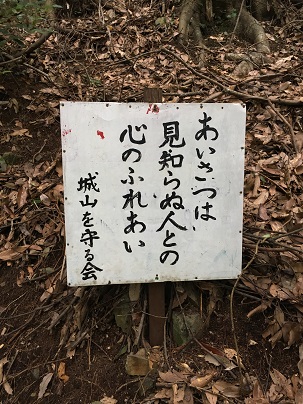 あいさつは、
見知らぬ人との
心のふれあい
城山を守る会